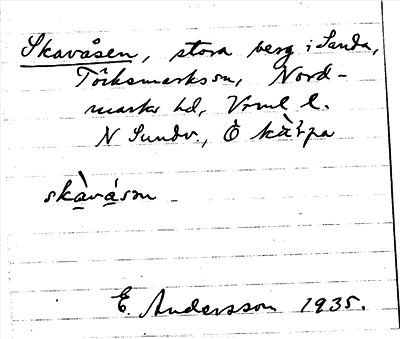 Skavåsen, stora berg i Sanda,
Töcksmarks sn, Nord-
marks hd, Vrml l.
N Sundv., Ö
skàvåson
E. Andersson 1935.